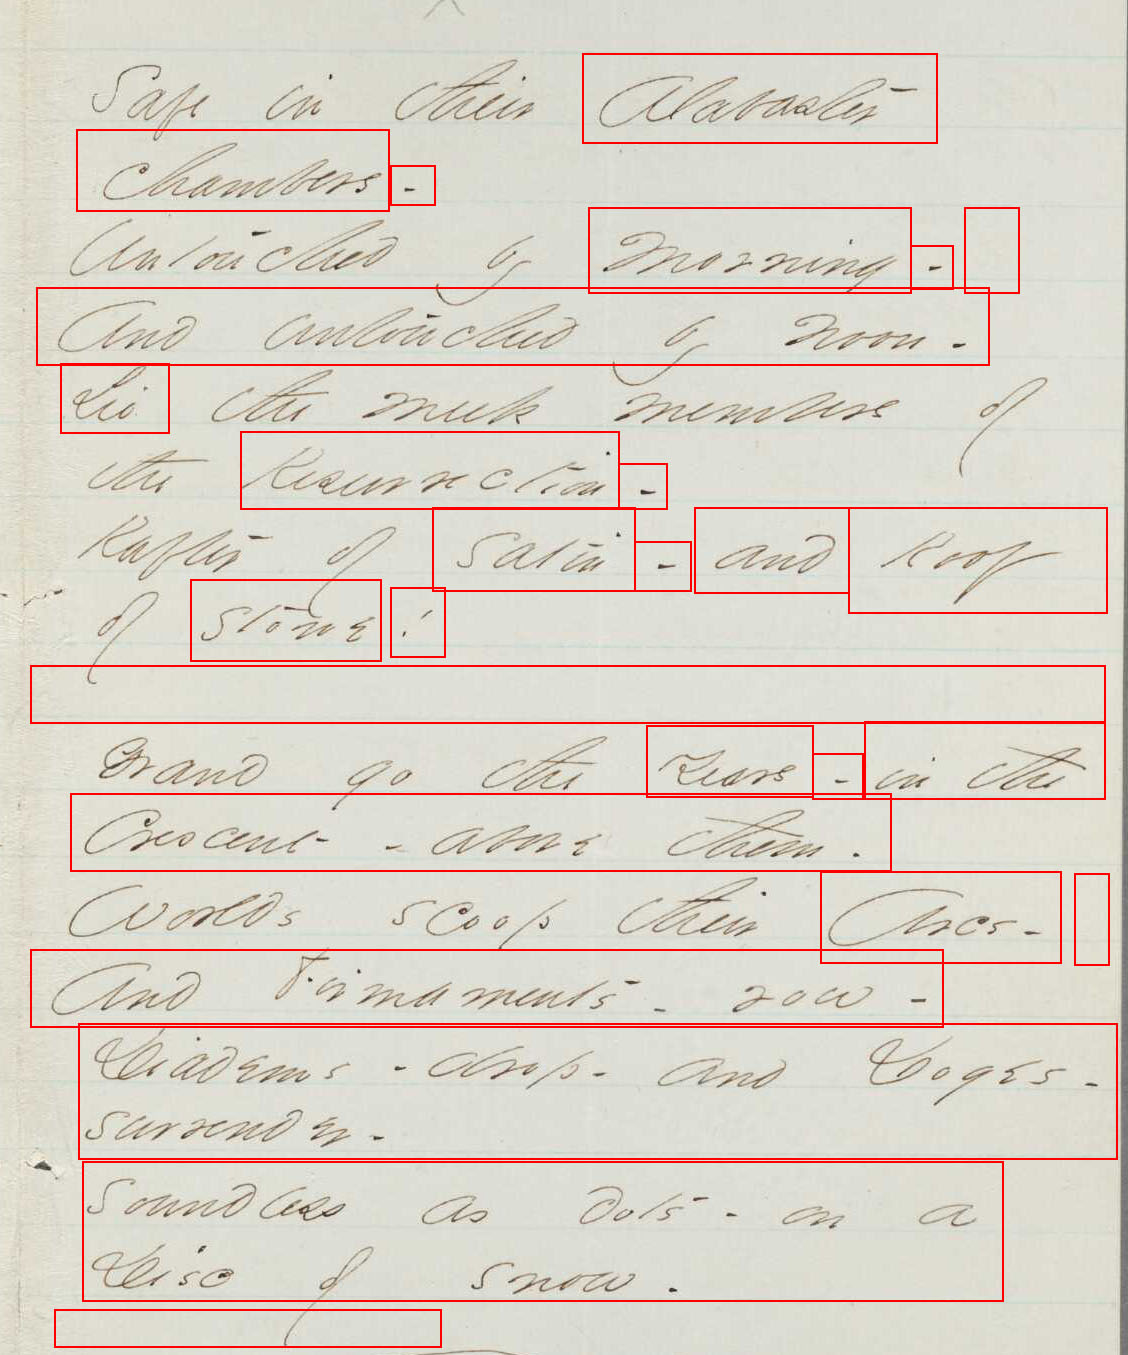 Safe in their Alabaster
Chambers -
Untouched by Morning -
And untouched by noon -
Lie the meek members of
the Resurrection -
Rafter of Satin - and Roof
of Stone!
Grand go the Years - in the
Crescent - above them -
Worlds scoop their Arcs -
And Firmaments - row -
Diadems - drop - and Doges -
surrender -
Soundless as dots - on a
Disc of snow -